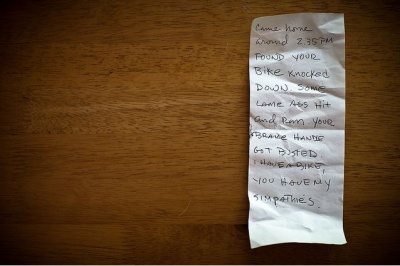 Came home
around 2:35PM
FOUND YOUR
Bike Knocked
DOWN. SOME
LAME ASS Hit
and Ran YOUR
BRAKE HANDE
GOT BUSTED.
I HAVE A BIKE,
YOU HAVE MY
SIMPATHIES.